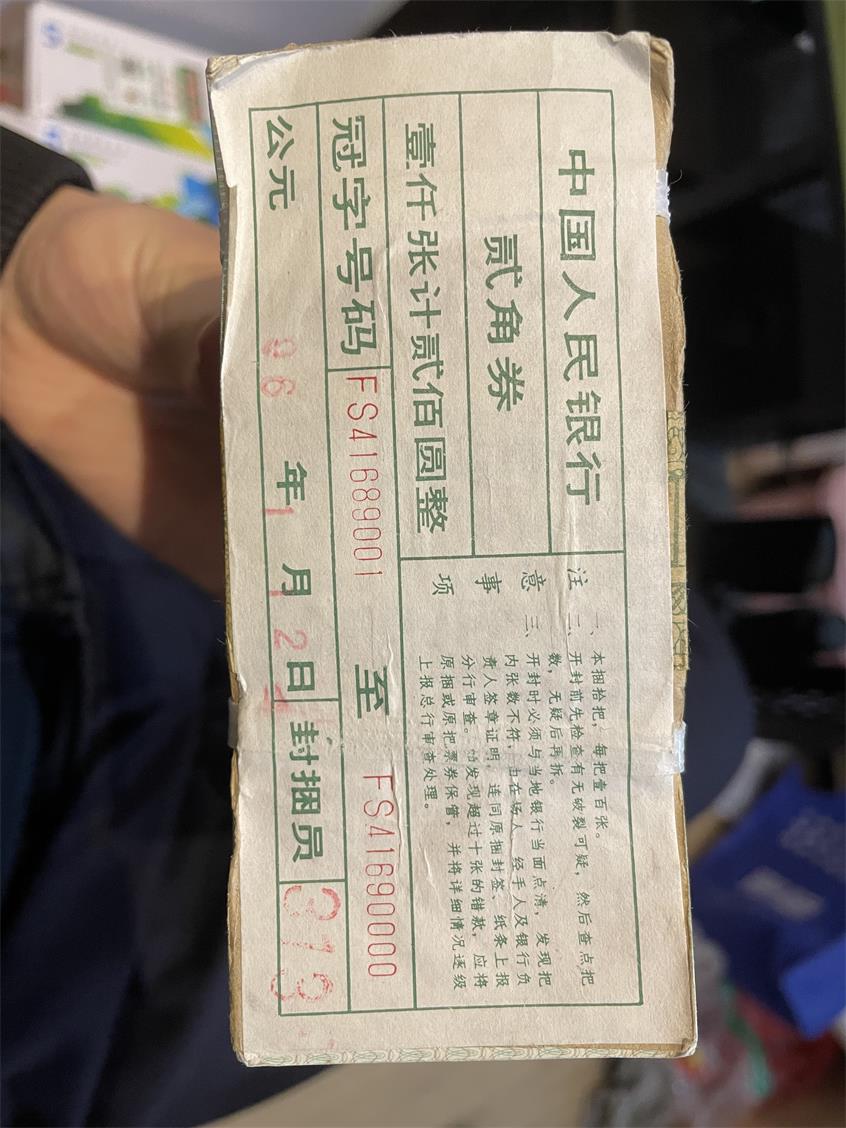 中国人民银行
贰角券
壹仟张计贰佰圆整
冠字号码 FS41689001 至 FS41690000
公元 96 年 1 月 12 日 封捆员 373
注意事项
一、本捆拾把，每把壹百张。
二、开封前先检查有无破裂可疑，然后查点把
数，无疑后再拆。
三、开封时必须与当地银行当面点清，发现把
内张数不符，由在场人、经手人及银行负
责人签章证明，连同原捆封签、纸条上报
分行审查。如发现超过十张的错款，应将
原捆或原把票券保管，并将详细情况逐级
上报总行审查处理。